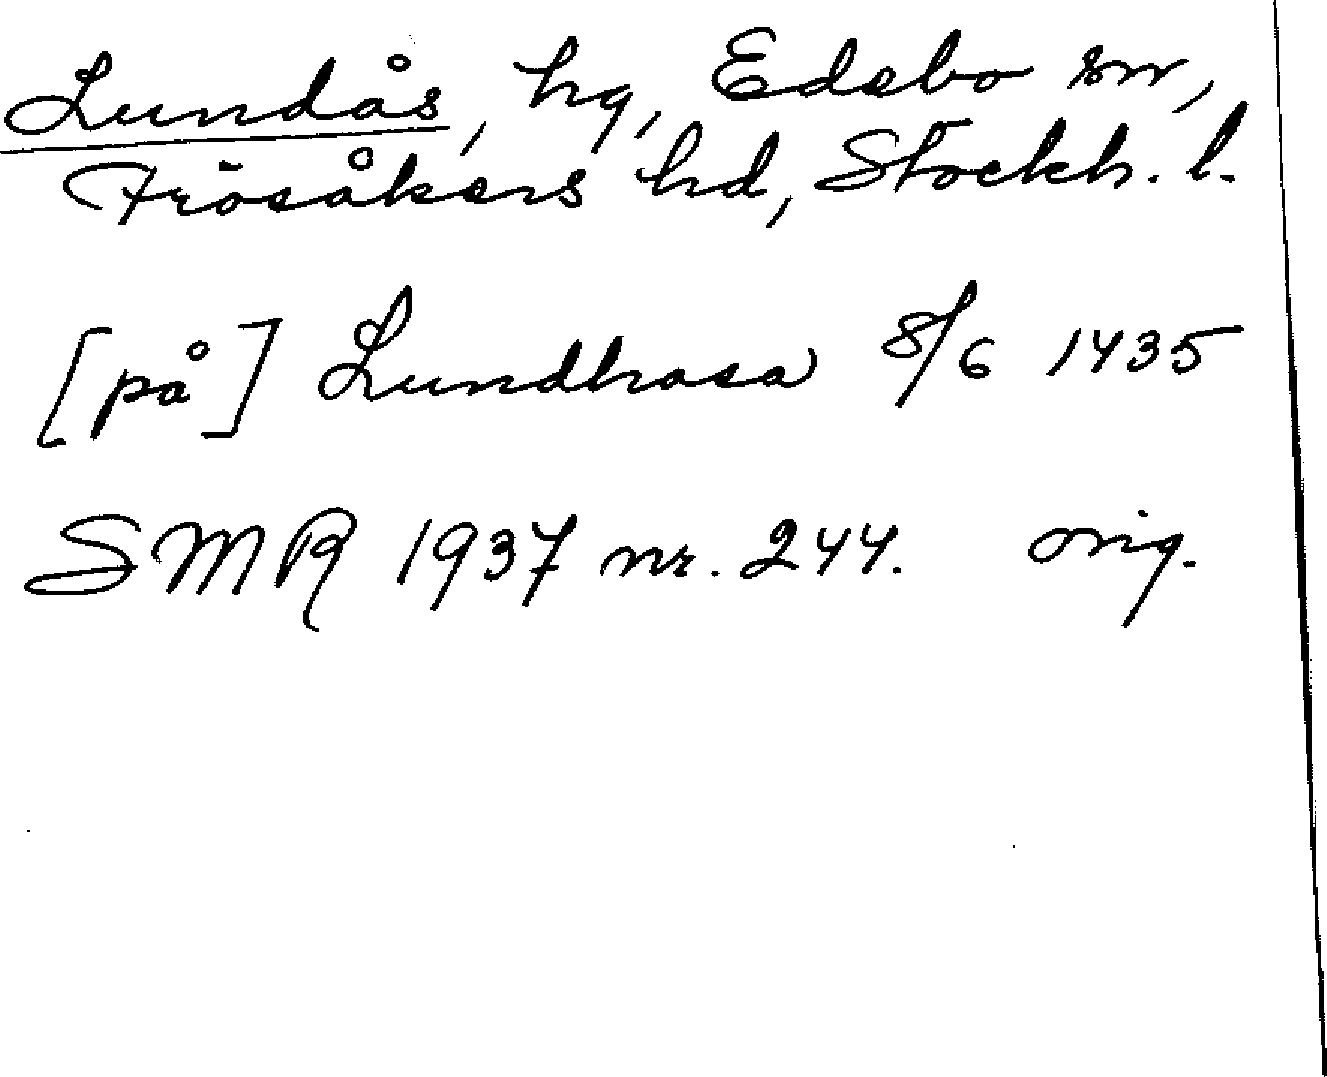 Lundås, hg, Edebo sn,
Frösåkers hd, Stockh. l.
[på] Lundhasa 8/6 1435
SMR 1937 nr. 244. orig.